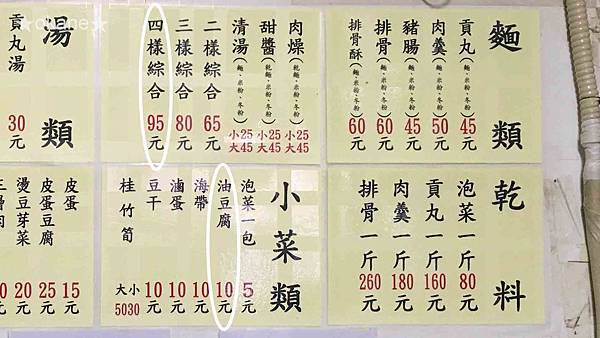 麵類
貢丸(麵、米粉、冬粉)45元
肉羹(麵、米粉、冬粉)50元
豬腸(麵、米粉、冬粉)45元
排骨(麵、米粉、冬粉)60元
排骨酥(麵、米粉、冬粉)60元
肉燥(乾麵、米粉、冬粉)小25大45
甜醬(乾麵、米粉、冬粉)小25大45
清湯(麵、米粉、冬粉)小25大45
二樣綜合65元
三樣綜合80元
四樣綜合95元
湯類
貢丸湯30元
乾料
泡菜一斤80元
貢丸一斤160元
肉羹一斤180元
排骨一斤260元
小菜類
泡菜一包5元
油豆腐10元
海帶10元
滷蛋10元
豆干10元
桂竹筍大50小30
皮蛋15元
皮蛋豆腐25元
燙豆芽菜20元